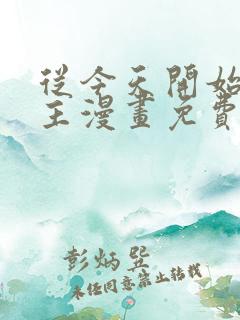 從今天開始
王漫畫免費
彭炳巽
未任同意禁止转载